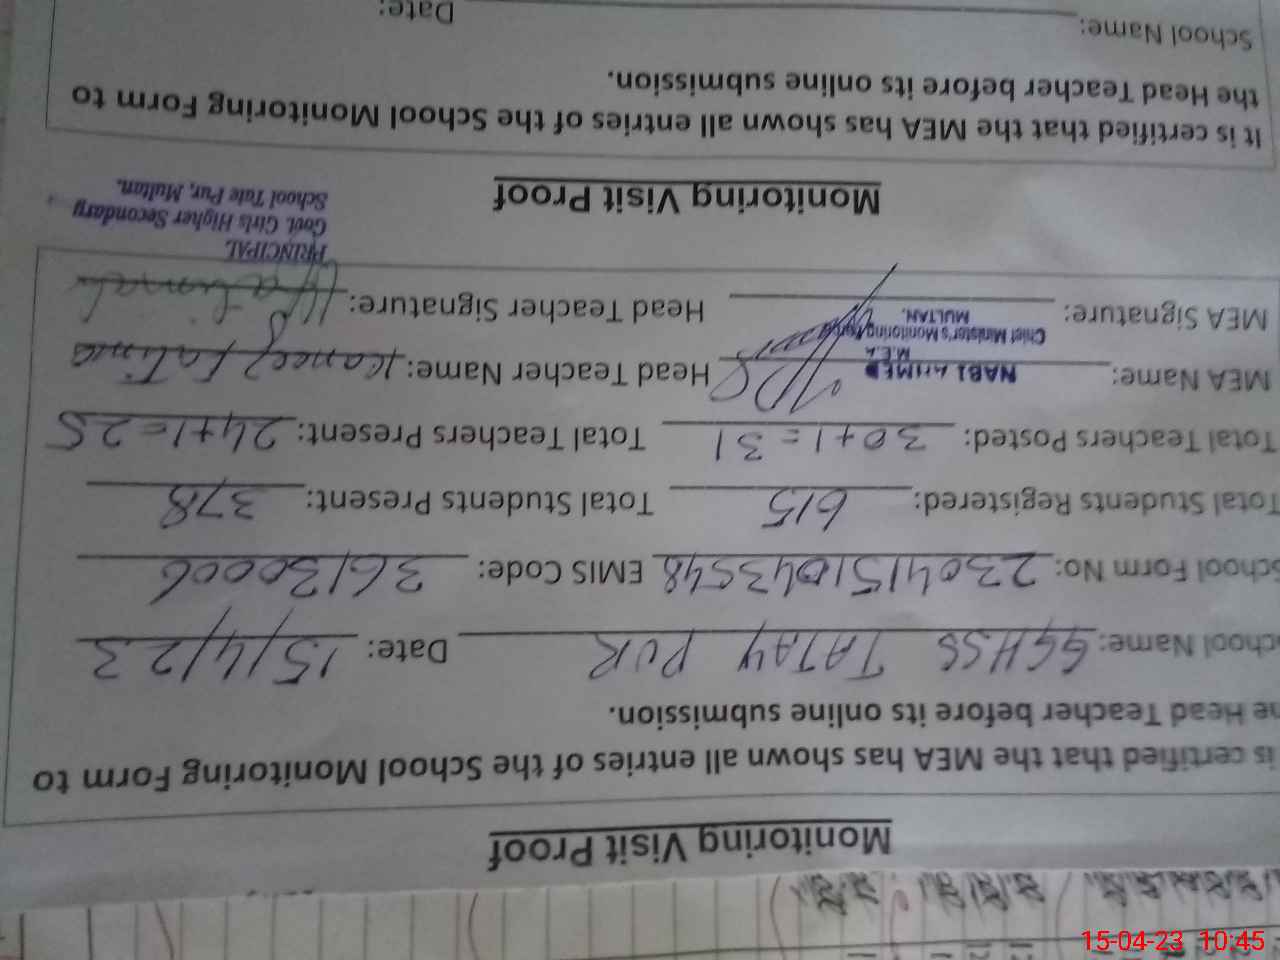 Monitoring Visit Proof
is certified that the MEA has shown all entries of the School Monitoring Form to
he Head Teacher before its online submission.
chool Name: GGHSS TATAY PUR Date: 15/4/23
School Form No: 2304151043548 EMIS Code: 36130006
Total Students Registered: 615 Total Students Present: 378
Total Teachers Posted: 30+1=31 Total Teachers Present: 24+1=25
MEA Name: NABI AHMED Head Teacher Name: Kaneez Fatima
M.E.A
Chief Minister's Monitoring Force
MULTAN.
MEA Signature: Head Teacher Signature: Fatimah
PRINCIPAL
Govt. Girls Higher Secondary
School Tate Pur, Multan.
Monitoring Visit Proof
It is certified that the MEA has shown all entries of the School Monitoring Form to
the Head Teacher before its online submission.
School Name: Date:
15-04-23 10:45